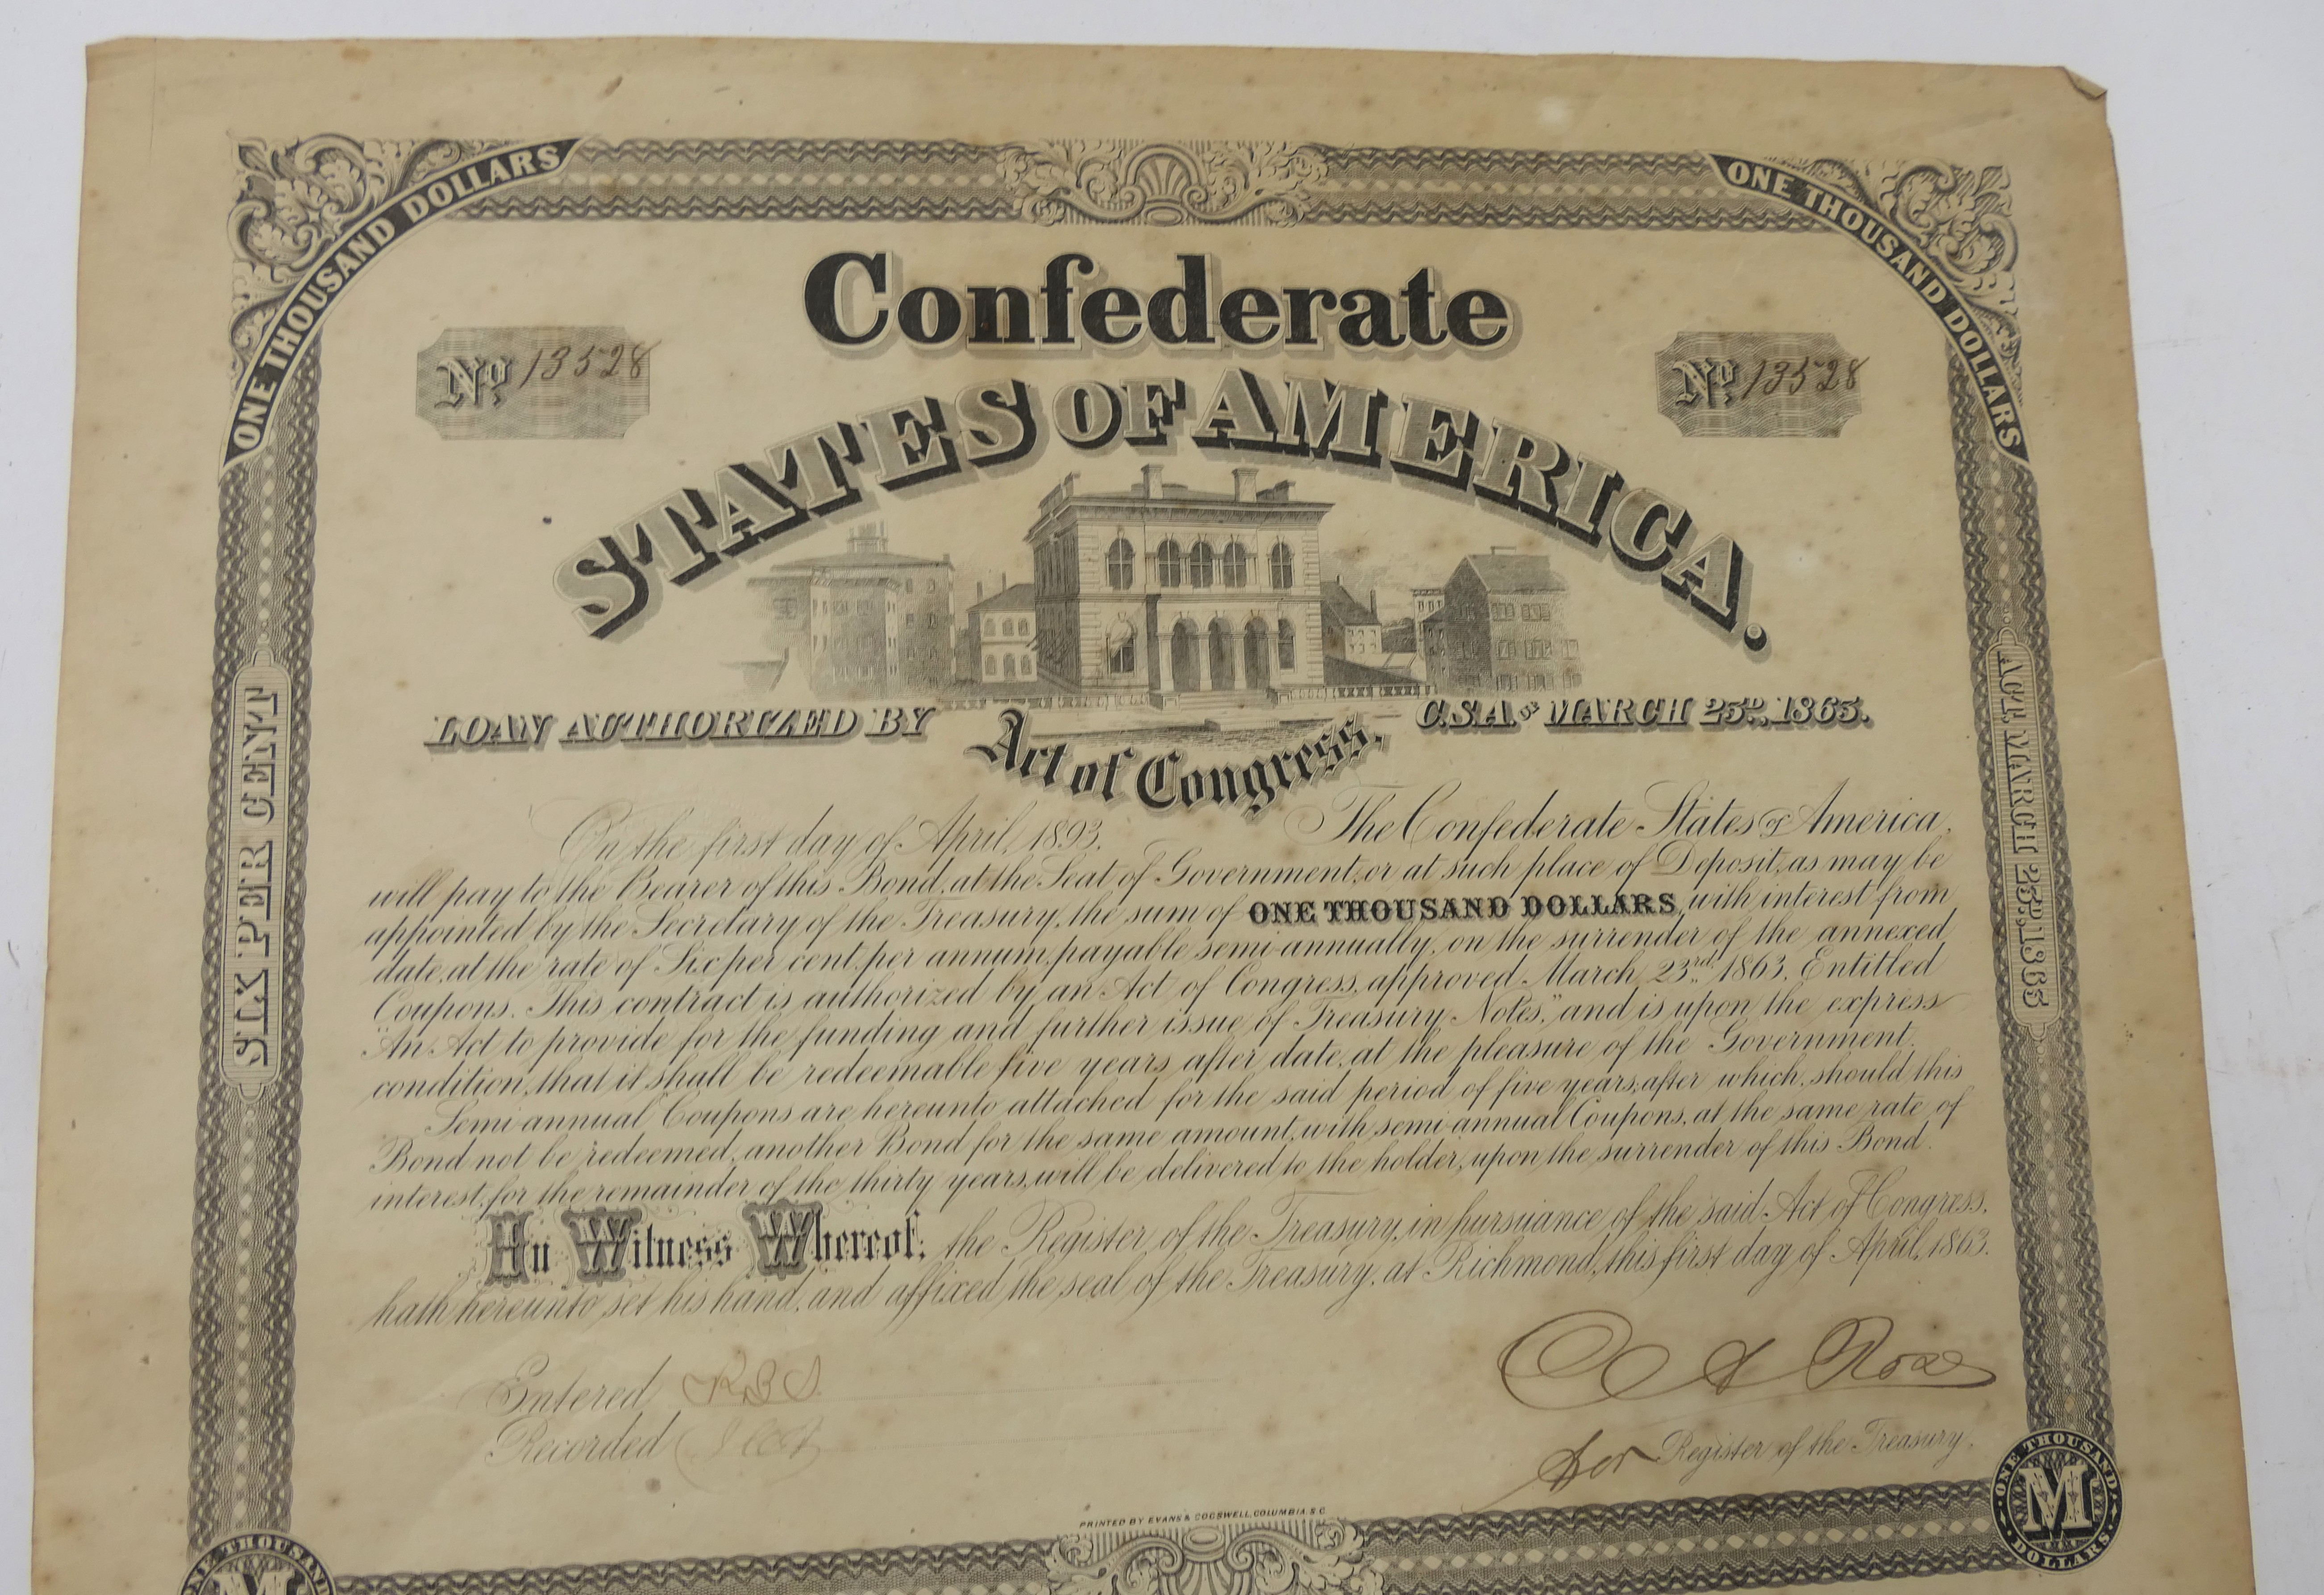 ONE THOUSAND DOLLARS
ONE THOUSAND DOLLARS
Confederate
No. 13528
No. 13528
STATES OF AMERICA.
LOAN AUTHORIZED BY
Act of Congress,
C.S.A. OF MARCH 23D, 1863.
SIX PER CENT
ACT, MARCH 23D, 1863
On the first day of April, 1893. The Confederate States of America,
will pay to the Bearer of this Bond, at the Seat of Government, or at such place of Deposit, as may be
appointed by the Secretary of the Treasury, the sum of ONE THOUSAND DOLLARS, with interest from
date, at the rate of Six per cent. per annum, payable semi-annually, on the surrender of the annexed
Coupons. This contract is authorized by an Act of Congress, approved March 23rd, 1863, Entitled
"An Act to provide for the funding and further issue of Treasury Notes," and is upon the express
condition, that it shall be redeemable five years after date, at the pleasure of the Government.
Semi-annual Coupons are hereunto attached for the said period of five years, after which, should this
Bond not be redeemed, another Bond for the same amount, with semi-annual Coupons, at the same rate of
interest, for the remainder of the thirty years, will be delivered to the holder, upon the surrender of this Bond.
In Witness Whereof, the Register of the Treasury, in pursuance of the said Act of Congress,
hath hereunto set his hand, and affixed the seal of the Treasury, at Richmond, this first day of April, 1863.
Entered RBS
Recorded
Rose
for Register of the Treasury.
PRINTED BY EVANS & COGSWELL, COLUMBIA S.C.
ONE THOUSAND
M
DOLLARS
ONE THOUSAND
M